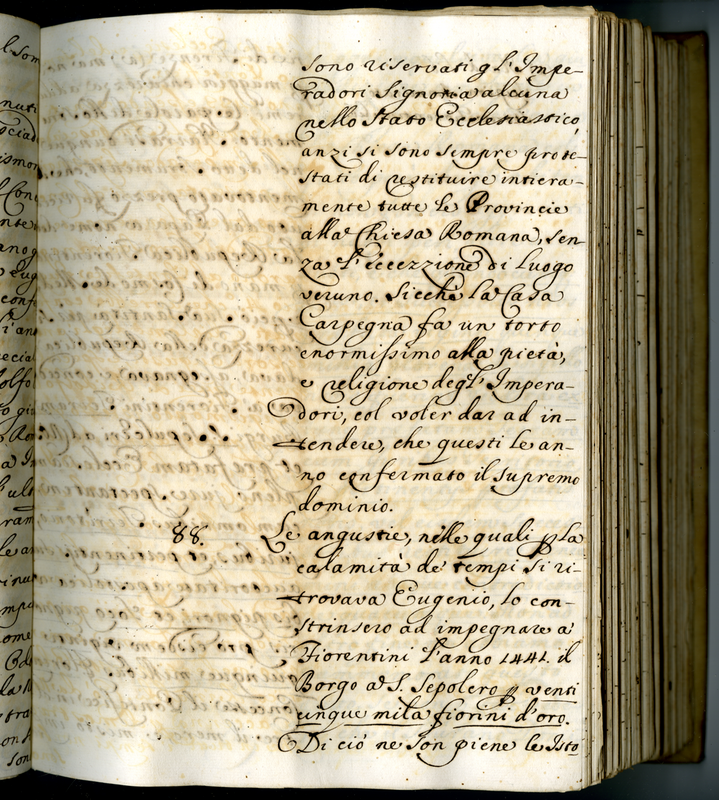 sono riservati gl'Impe-
radori Signoria alcuna
nello Stato Ecclesiastico,
anzi si sono sempre prote-
stati di restituire intiera-
mente tutte le Provincie
alla Chiesa Romana, sen-
za l'eccezzione di luogo
veruno. Sicchè la Casa
Carpegna fa un torto
enormissimo alla pietà,
e religione degl'Impera-
dori, col voler dar ad in-
tendere, che questi le an-
no confermato il supremo
dominio.
88. Le angustie, nelle quali p la
calamità de tempi si ri-
trovava Eugenio, lo con-
strinsero ad impegnare a
Fiorentini l'anno 1441. il
Borgo a S. Sepolcro p venti
cinque mila fiorini d'oro.
Di ciò ne son piene le Isto-